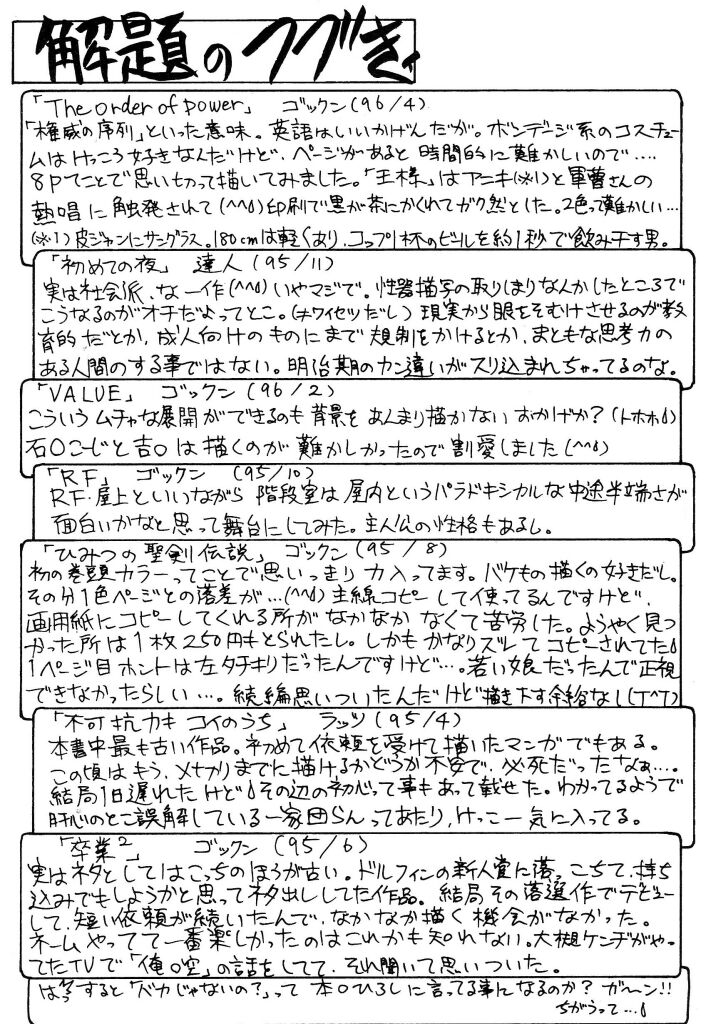 解題のつづき
「The order of power」 ゴックン(96/4)
「権威の序列」といった意味。英語はいいかげんだが。ボンデージ系のコスチュー
ムはけっこう好きなんだけど、ページがあると時間的に難かしいので‥‥
8Pてことで思い切って描いてみました。「王様」はアニキ(※1)と軍曹さんの
熱唱に触発されて(^^;)印刷で黒が茶にかくれてガク然とした。2色って難かしい…
(※1)皮ジャンにサングラス。180cmは軽くあり、コップ1杯のビールを約1秒で飲み干す男。
「初めての夜」 達人(95/11)
実は社会派、な一作(^^;)いやマジで。性器描写の取りしまりなんかしたところで
こうなるのがオチだよってとこ。(チワイセツだし)現実から眼をそむけさせるのが教
育的だとか、成人向けのものにまで規制をかけるとか、まともな思考力の
ある人間のする事ではない。明治期のカン違いがスリ込まれちゃってるのな。
「VALUE」 ゴックン(96/2)
こういうムチャな展開ができるのも背景をあんまり描かないおかげか?(トホホ;)
石○こーじと吉○は描くのが難かしかったので割愛しました(^^;)
「RF」 ゴックン (95/10)
RF・屋上といいながら階段室は屋内というパラドキシカルな中途半端さが
面白いかなと思って舞台にしてみた。主人公の性格もあるし。
「ひみつの聖剣伝説」 ゴックン(95/8)
初の巻頭カラーってことで思いっきり力入ってます。バケもの描くの好きだし。
その分1色ページとの落差が…(^^;)主線コピーして使ってるんですけど、
画用紙にコピーしてくれる所がなかなかなくて苦労した。ようやく見つ
かった所は1枚250円もとられたし。しかもかなりズレてコピーされてた;
1ページ目ホントは左タチキリだったんですけど…。若い娘だったんで正視
できなかったらしい…。続編思いついたんだけど描き下す余裕なし(T^T)
「不可抗力もコイのうち」 ラッツ(95/4)
本書中最も古い作品。初めて依頼を受けて描いたマンガでもある。
この頃はもう、〆切りまでに描けるかどうか不安で、必死だったなぁ…。
結局1日遅れたけど;その辺の初心って事もあって載せた。わかってるようで
肝心のとこ誤解している一家団らんってあたり、けっこー気に入ってる。
「卒業²」 ゴックン(95/6)
実はネタとしてはこっちのほうが古い。ドルフィンの新人賞に落っこちて、持ち
込みでもしようかと思ってネタ出ししてた作品。結局その落選作でデビュー
して、短い依頼が続いたんで、なかなか描く機会がなかった。
ネームやってて一番楽しかったのはこれかも知れない。大槻ケンヂがや
ってたTVで「俺○空」の話をしてて、それ聞いて思いついた。
すると「バカじゃないの?」って本○ひろしに言ってる事になるのか?ガ〜ン!!
ちがうって…;